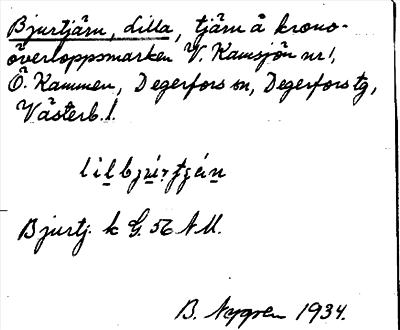 Bjurtjärn, Lilla, tjärn å krono-
överloppsmarken V. Kamsjön nr 1,
Ö. Kammen, Degerfors sn, Degerfors tg,
Västerb. l.
Bjurtj. k G. 56 NU.
B. Nygren 1934.